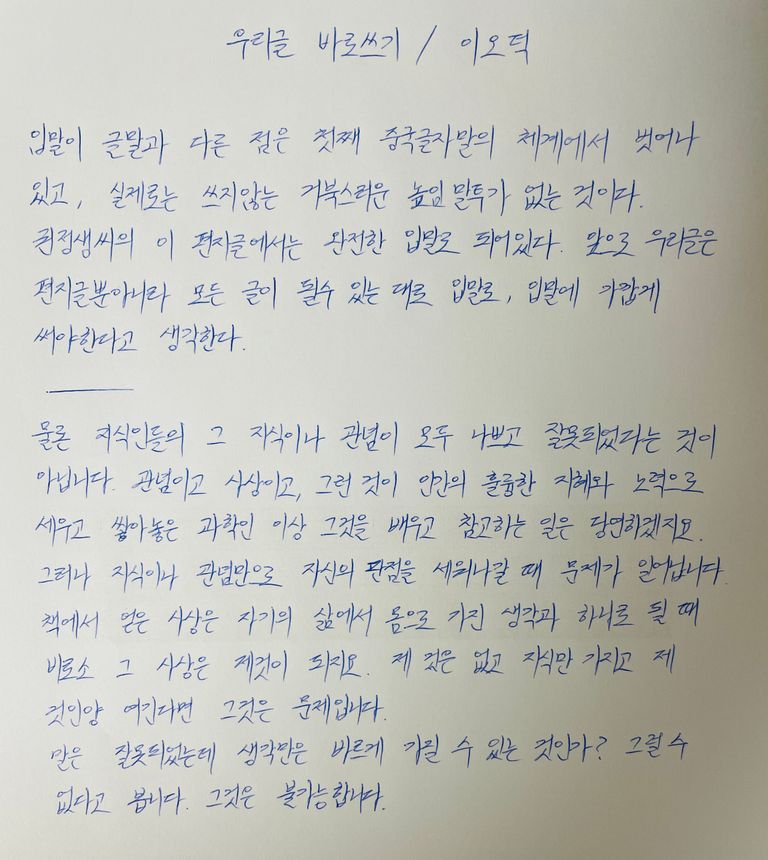 우리글 바로쓰기 / 이오덕
입말이 글말과 다른 점은 첫째 중국글자말의 체계에서 벗어나
있고, 실제로는 쓰지않는 거북스러운 높임말투가 없는 것이다.
권정생씨의 이 편지글에서는 완전한 입말로 되어있다. 앞으로 우리글은
편지글뿐아니라 모든 글이 될수 있는 대로 입말로, 입말에 가깝게
써야한다고 생각한다.
물론 지식인들의 그 지식이나 관념이 모두 나쁘고 잘못되었다는 것이
아닙니다. 관념이고 사상이고, 그런 것이 인간의 훌륭한 지혜와 노력으로
세우고 쌓아놓은 과학인 이상 그것을 배우고 참고하는 일은 당연하겠지요.
그러나 지식이나 관념만으로 자신의 관점을 세워나갈 때 문제가 일어납니다.
책에서 얻은 사상은 자기의 삶에서 몸으로 가진 생각과 하나로 될 때
비로소 그 사상은 제것이 되지요. 제 것은 없고 지식만 가지고 제
것인양 여긴다면 그것은 문제입니다.
말은 잘못되었는데 생각만은 바르게 가질 수 있는 것인가? 그럴 수
없다고 봅니다. 그것은 불가능합니다.